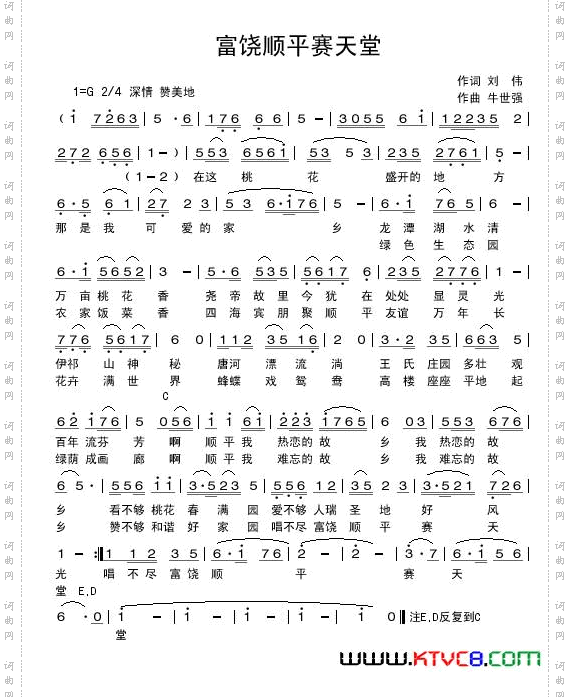 富饶顺平赛天堂
作词 刘 伟
1=G 2/4 深情 赞美地
作曲 牛世强
( 1 7263 | 5 · 6 | 176 6 | 5 - | 3055 6 1 | 12235 2 |
272 656 | 1 - ) | 553 6561 | 53 5 3 | 235 2761 | 5 - |
(1-2) 在这 桃 花 盛开的 地 方
6·5 6 1 | 27 2 3 | 5 3 6·176 | 5 - | 6·1 265 |
那 是 我 可 爱 的 家 乡 龙 潭 湖 水 清
绿 色 生 态 园
6·1 5652 | 3 - | 5·6 535 | 5617 6 | 235 2776 |
万 亩 桃 花 香 尧 帝 故 里 今 犹 在 处处 显 灵 光
农 家 饭 菜 香 四 海 宾 朋 聚 顺 平 友谊 万 年 长
776 5617 | 6 0 | 112 35 16 | 2 0 | 3·2 35 |
伊祁 山 神 秘 唐河 漂 流 淌 王 氏 庄园 多壮 观
花卉 满 世 界 蜂蝶 戏 鸳 鸯 高 楼 座座 平地 起
C
62 176 | 5 056 | 5·3 6 1 | 223 1765 | 6 03 | 553 67 |
百年 流芬 芳 啊 顺 平 我 热恋的 故 乡 我 热恋的 故
绿荫 成画 廊 啊 顺 平 我 难忘的 故 乡 我 难忘的 故
乡 看不够 桃花 春 满 园 爱不够 人瑞 圣 地 好 风
乡 赞不够 和谐 好 家 园 唱不尽 富饶 顺 平 赛 天
1 - :‖ 1 12 35 | 6·1 276 | 2 - | 2 - |
光 唱 不 尽 富 饶 顺 平 赛 天
堂 E.D
6 · 0 | 1 - | 1 - | 1 - | 1 - | 1 0 ‖ 注E.D反复到C
堂
www.KTVC8.com
词曲网